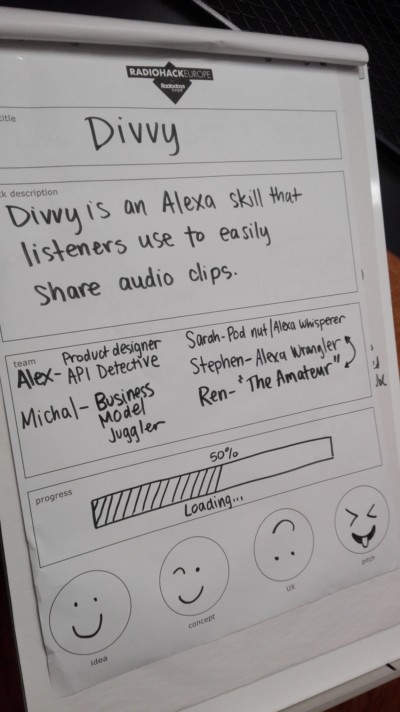 RADIOHACKEUROPE
Radiodays
title
Divvy
ck description
Divvy is an Alexa skill that
listeners use to easily
share audio clips.
team
Alex- Product designer
API Detective
Michal- Business
Model
Juggler
Sarah- Pod nut/Alexa whisperer
Stephen- Alexa Wrangler
Ren- "The Amateur"
progress
50%
Loading...
idea
concept
UX
pitch